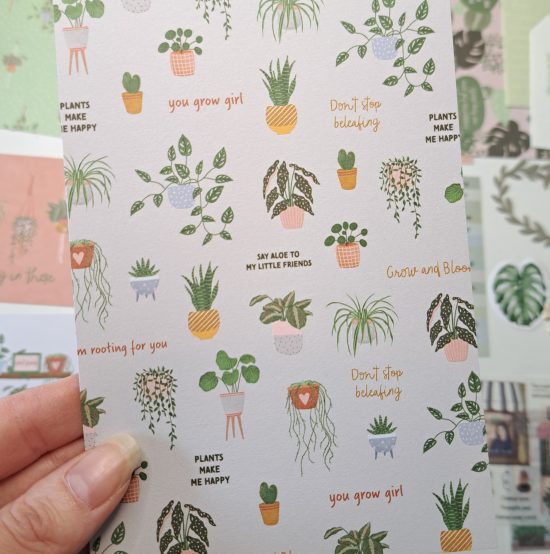 you grow girl
Don't stop
beleafing
PLANTS
MAKE
ME HAPPY
PLANTS
MAKE
ME HAPPY
SAY ALOE TO
MY LITTLE FRIENDS
Grow and Bloo
m rooting for you
Don't stop
beleafing
PLANTS
MAKE
ME HAPPY
you grow girl